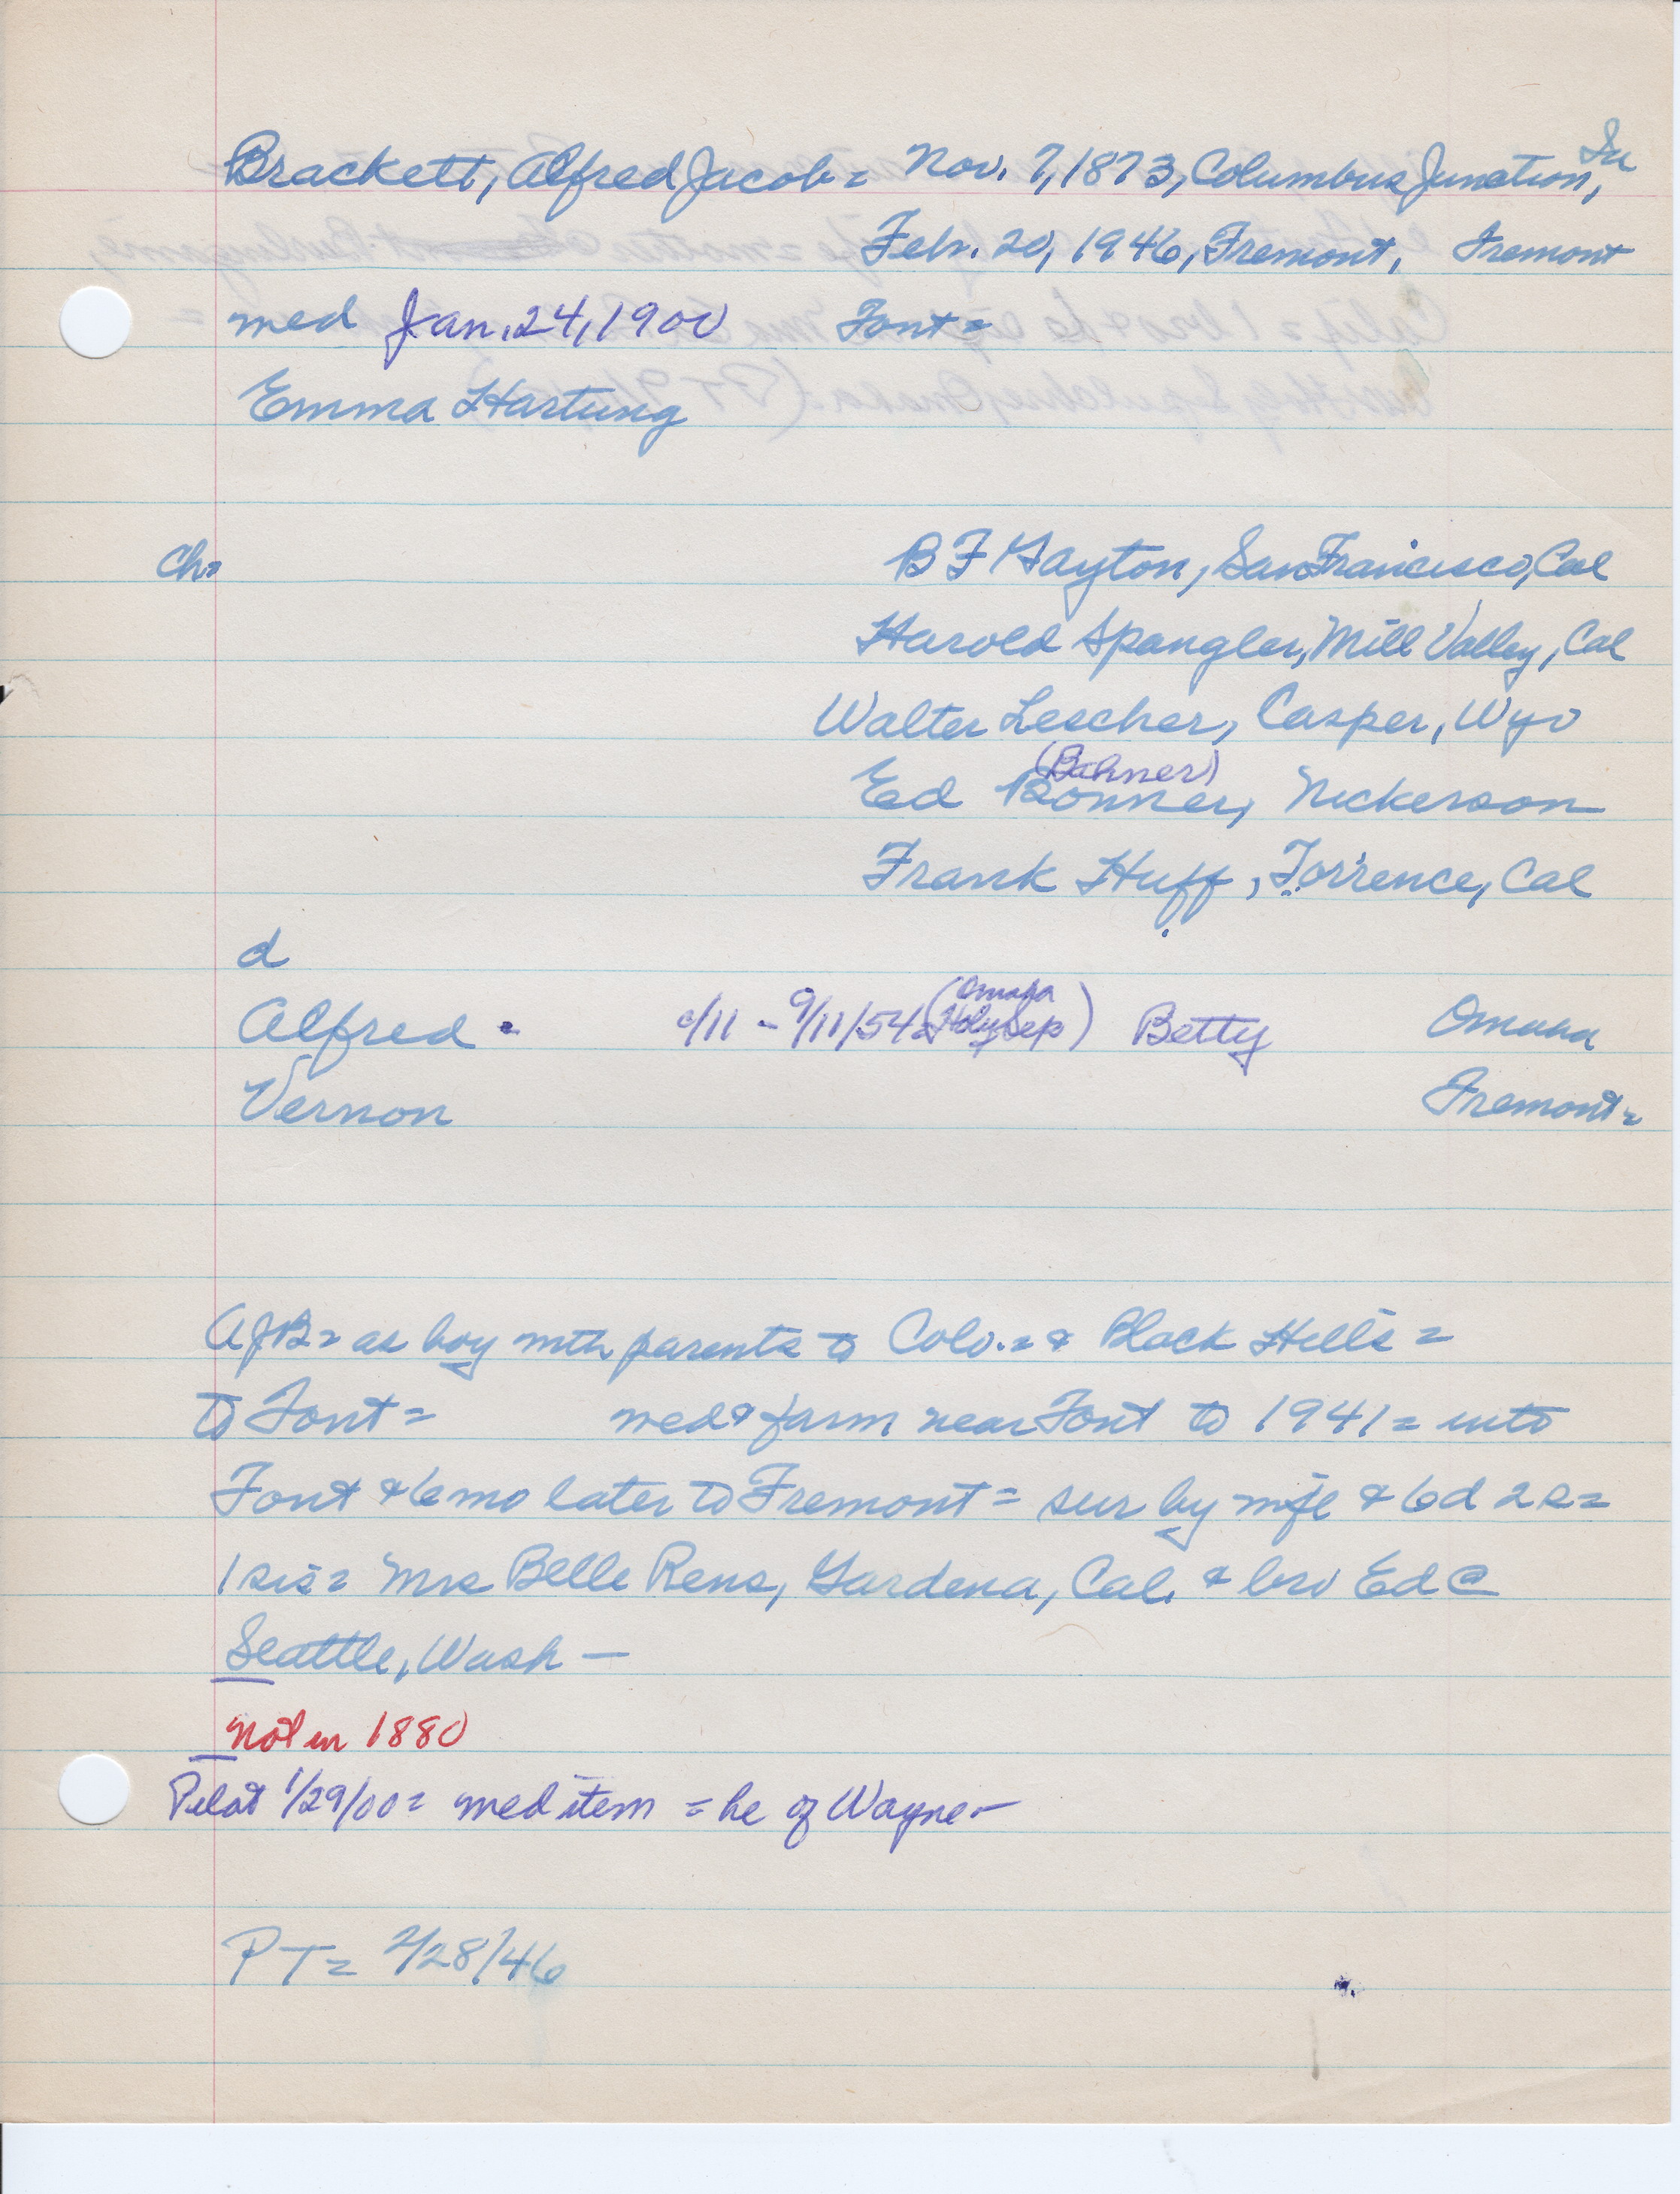 Ia
Brackett, Alfred Jacob = Nov. 7, 1873, Columbus Junction,
Feb. 20, 1946, Fremont, Fremont
med Jan. 24, 1900 Font =
Emma Hartung
Ch= B F Gayton, San Francisco, Cal
Harold Spangler, Mill Valley, Cal
Walter Lescher, Casper, Wyo
(Bahner)
Ed Bonner, Nickerson
Frank Huff, Torrence, Cal
d
Alfred = c/11 - 9/11/54 = (Omaha Holy Sep) Betty Omaha
Vernon Fremont =
AJB = as boy with parents to Colo. = & Black Hills =
to Font = med & farm near Font to 1941 = into
Font & 6 mo later to Fremont = sur by wife & 6d 2s =
1 sis = Mrs Belle Rens, Gardena, Cal. & bro Ed @
Seattle, Wash —
Not in 1880
Pilot 1/29/00 = med item = he of Wayne —
PT = 2/28/46